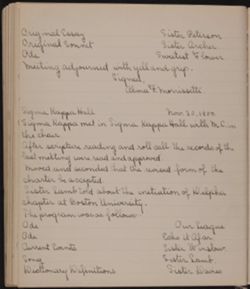 Original Essay Sister Peterson
Original Sonnet Sister Archer
Ode Sweetest Flower
Meeting adjourned with yell and grip.
Signed,
Alma F. Morrissette
Sigma Kappa Hall Nov. 30, 1900
Sigma Kappa met in Sigma Kappa Hall with M. C. in
the chair.
After scripture reading and roll call the records of the
last meeting were read and approved.
Moved and seconded that the revised form of the
charter be accepted.
Sister Lamb told about the initiation of Delphic
chapter at Boston University.
The program was as follows:
Ode Our League
Ode Echo
Current Events Sister Winslow
Song Sister Lamb
Dictionary Definitions Sister